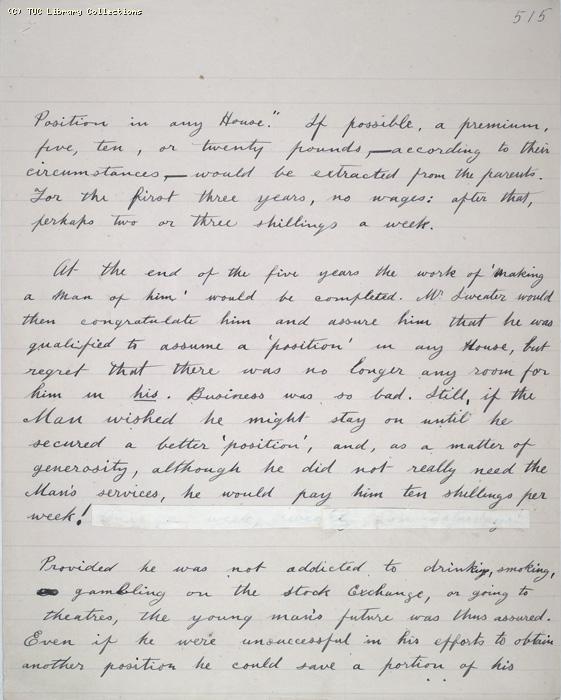 (C) TUC Library Collections
515
Position in any House." If possible, a premium,
five, ten, or twenty pounds,—according to their
circumstances,—would be extracted from the parents.
For the first three years, no wages: after that,
perhaps two or three shillings a week.
At the end of the five years the work of 'making
a Man of him' would be completed. Mr Sweater would
then congratulate him and assure him that he was
qualified to assume a 'position' in any House, but
regret that there was no longer any room for
him in his. Business was so bad. Still, if the
Man wished he might stay on until he
secured a better 'position', and, as a matter of
generosity, although he did not really need the
Man's services, he would pay him ten shillings per
week!
Provided he was not addicted to drinking, smoking,
gambling on the stock Exchange, or going to
theatres, the young man's future was thus assured.
Even if he were unsuccessful in his efforts to obtain
another position he could save a portion of his